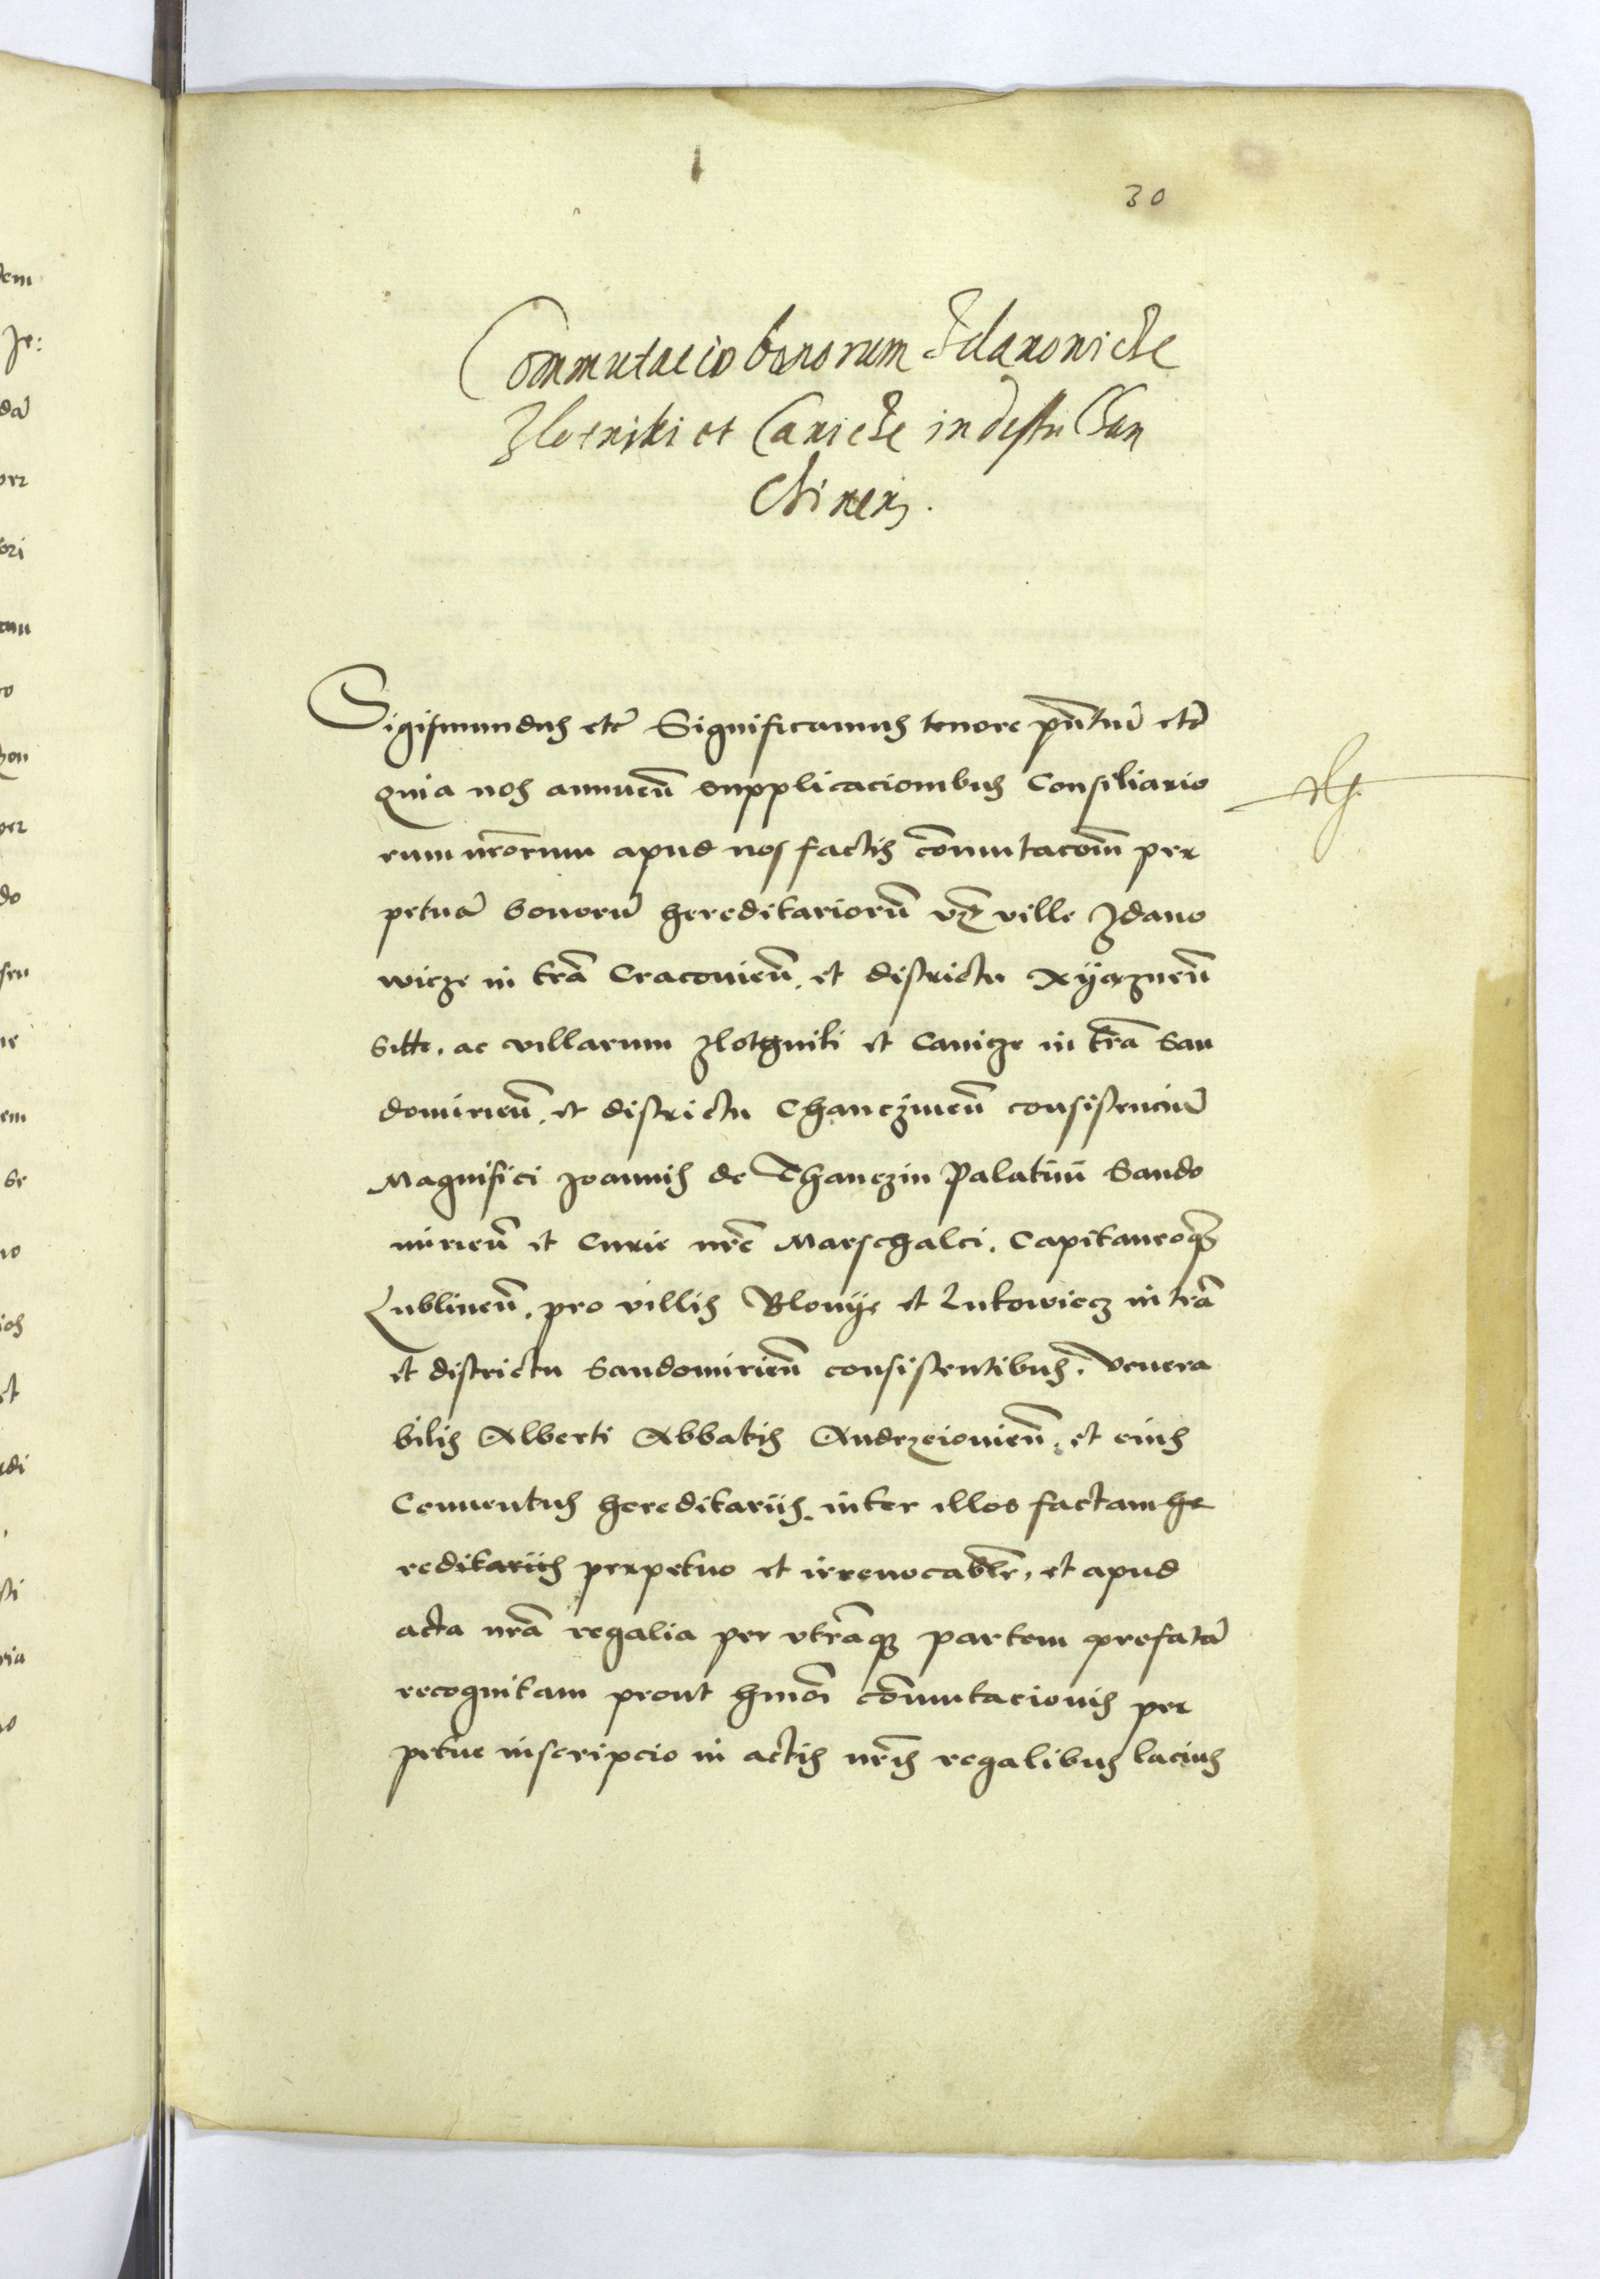 30
Commutacio bonorum Zdanowicze
Zlotniki et Canicze in destu Chan
cinen̄.
Sigismundus etc̄ Significamus tenore pñtiū etc̄
Quia nos annueñ supplicacionibus Consiliario
rum nr̄orum apud nos factis cōmutacoēm per
petuā bonorū hereditariorū vz̄ ville Zdano
wicze in trā Cracovieñ. et districtu Xyązneñ
site. ac villarum Zlothniki et Canicze in trā San
domirieñ. et districtu Chanczineñ consistenciū
Magnifici Joannis de Thanczin Palatini Sando
mirieñ et Curie nr̄e Marschalci. Capitaneoqz
Lublineñ. pro villis Blonye et Lukowiecz in trā
et districtu Sandomirieñ consistentibus. Venera
bilis Alberti Abbatis Andrzeiovieñ. et eius
Conventus hereditariis. inter illos factam he
reditariis perpetuo et irrevocablr̄. et apud
acta nr̄a regalia per utrāqz partem prefatā
recognitam prout hmōi cōmutacionis per
petue inscripcio in actis nr̄is regalibus lacius